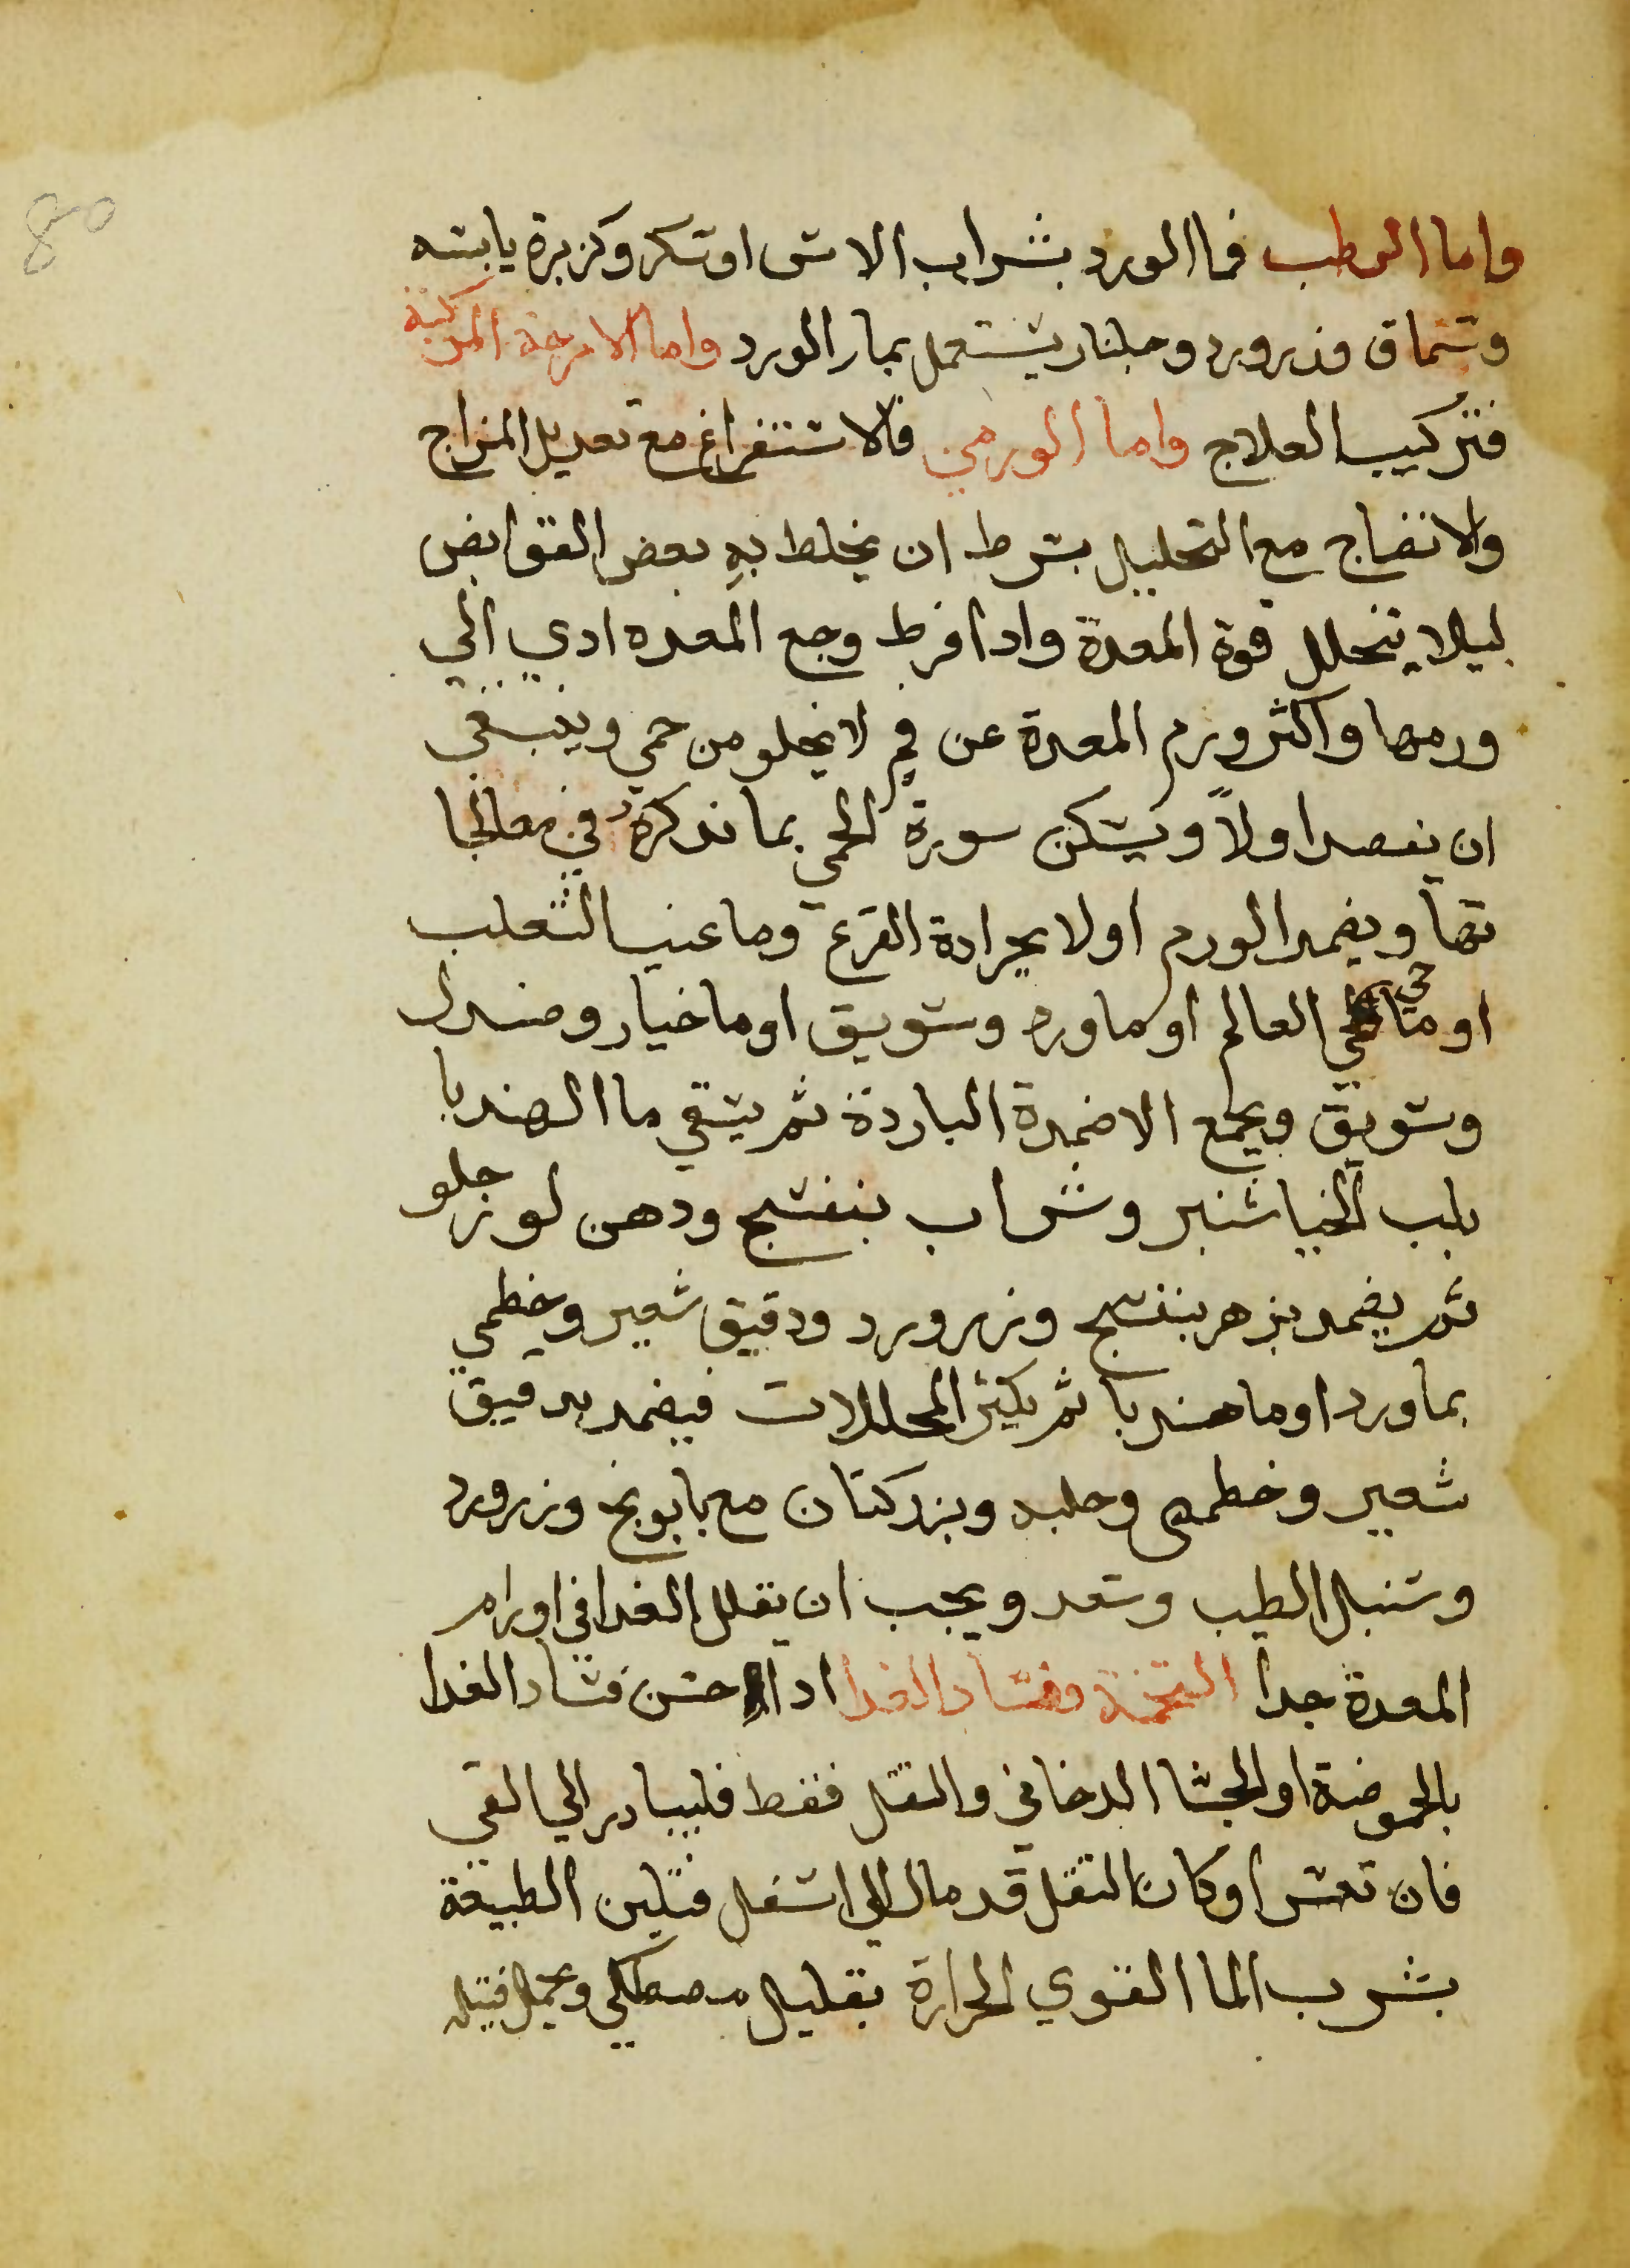 80
واما الرطب فما الورد بشراب الاس اوسكر وكزبرة يابسه
وسماق وزرورد وجلنار يستعمل بمار الورد واما الامزجة المركبة
فتركيب العلاج واما الورمي فالاستفراغ مع تعديل المزاج
والانضاج مع التحليل بشرط ان يخلط به بعض القوابض
ليلا يتحلل قوة المعدة وادا افرط وجع المعده ادي الي
ورمها واكثر ورم المعدة عن لا يخلو من حمي وينبغي
ان يفصد اولاً ويسكن سورة الحمي بما نذكره في معالجا
تها ويضمد الورم اولا بجرادة القرع وما عنب الثعلب
او ما حي العالم او ماورد وسويق اوما خيار وصندل
وسويق ويجمع الاضمدة الباردة ثم يسقي ما الهندبا
بلب الخياشنبر وشراب بنفسج ودهن لوز حلو
ثم يضمد بزهر بنفسج وزرورد ودقيق شعير وخطمي
بماورد اوما هندبا ثم يكثر المحللات فيضمد بدقيق
شعير وخطمي وحلبه وبزر كتان مع بابونج وزرورد
وسنبل الطيب وسعد ويجب ان يقلل الغدا في اورام
المعدة جدا التخمة وفساد الغدا ادا احسن فساد الغدا
بالحموضة او الجشا الدخاني والثقل فقط فليبادر الي القي
فان تعسر اوكان الثقل قد مال الي اسفل فتلين الطبيعة
بشرب الما القوي الحرارة بقليل مصطكي وتحمل فتيله